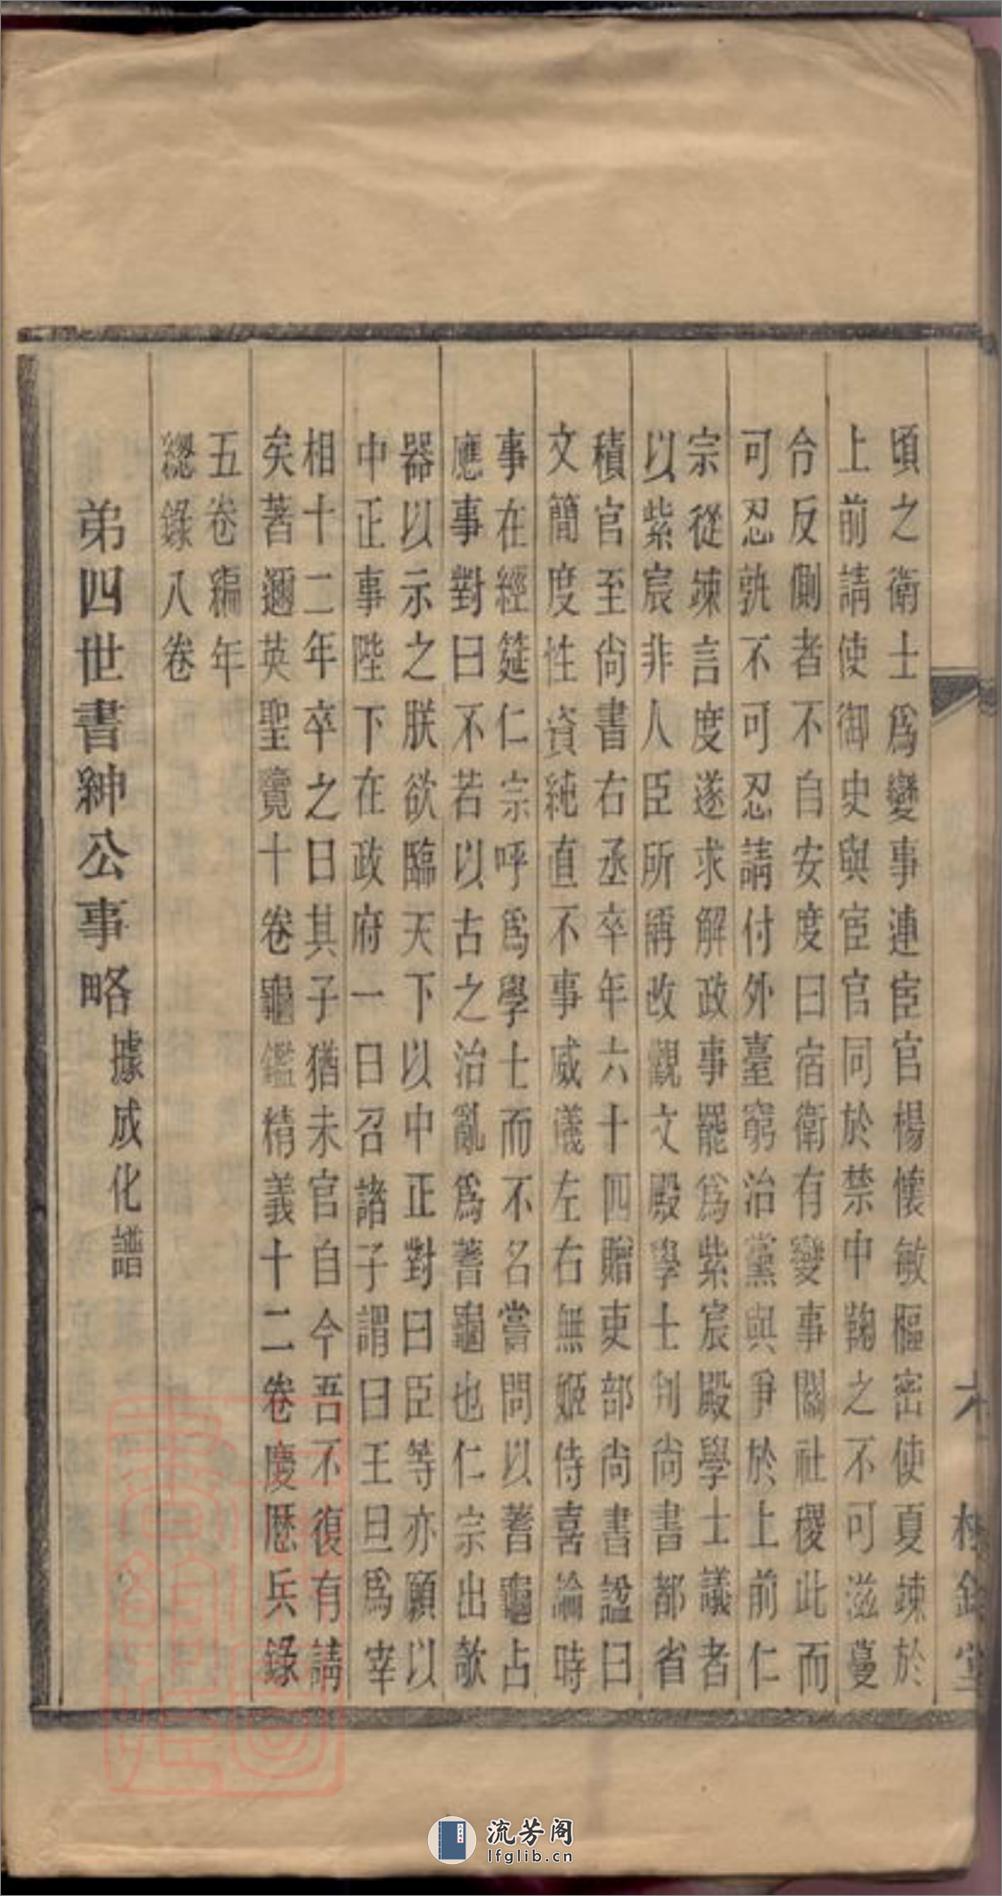 頃之衛士爲變事連宦官楊懷敏樞密使夏竦於
上前請使御史與宦官同於禁中鞫之不可滋蔓
令反側者不自安度曰宿衛有變事關社稷此而
可忍孰不可忍請付外臺窮治黨與爭於上前仁
宗從竦言度遂求解政事罷爲紫宸殿學士議者
以紫宸非人臣所稱改觀文殿學士判尚書都省
積官至尚書右丞卒年六十四贈吏部尚書諡曰
文簡度性資純直不事威儀左右無姬侍喜論時
事在經筵仁宗呼爲學士而不名嘗問以蓍龜占
應事對曰不若以古之治亂爲蓍龜也仁宗出欹
器以示之朕欲臨天下以中正對曰臣等亦願以
中正事陛下在政府一日召諸子謂曰王旦爲宰
相十二年卒之日其子猶未官自今吾不復有請
矣著邇英聖覽十卷龜鑑精義十二卷慶歷兵錄
五卷編年
總錄八卷
弟四世書紳公事略據成化譜
六
流芳阁
lfglib.cn